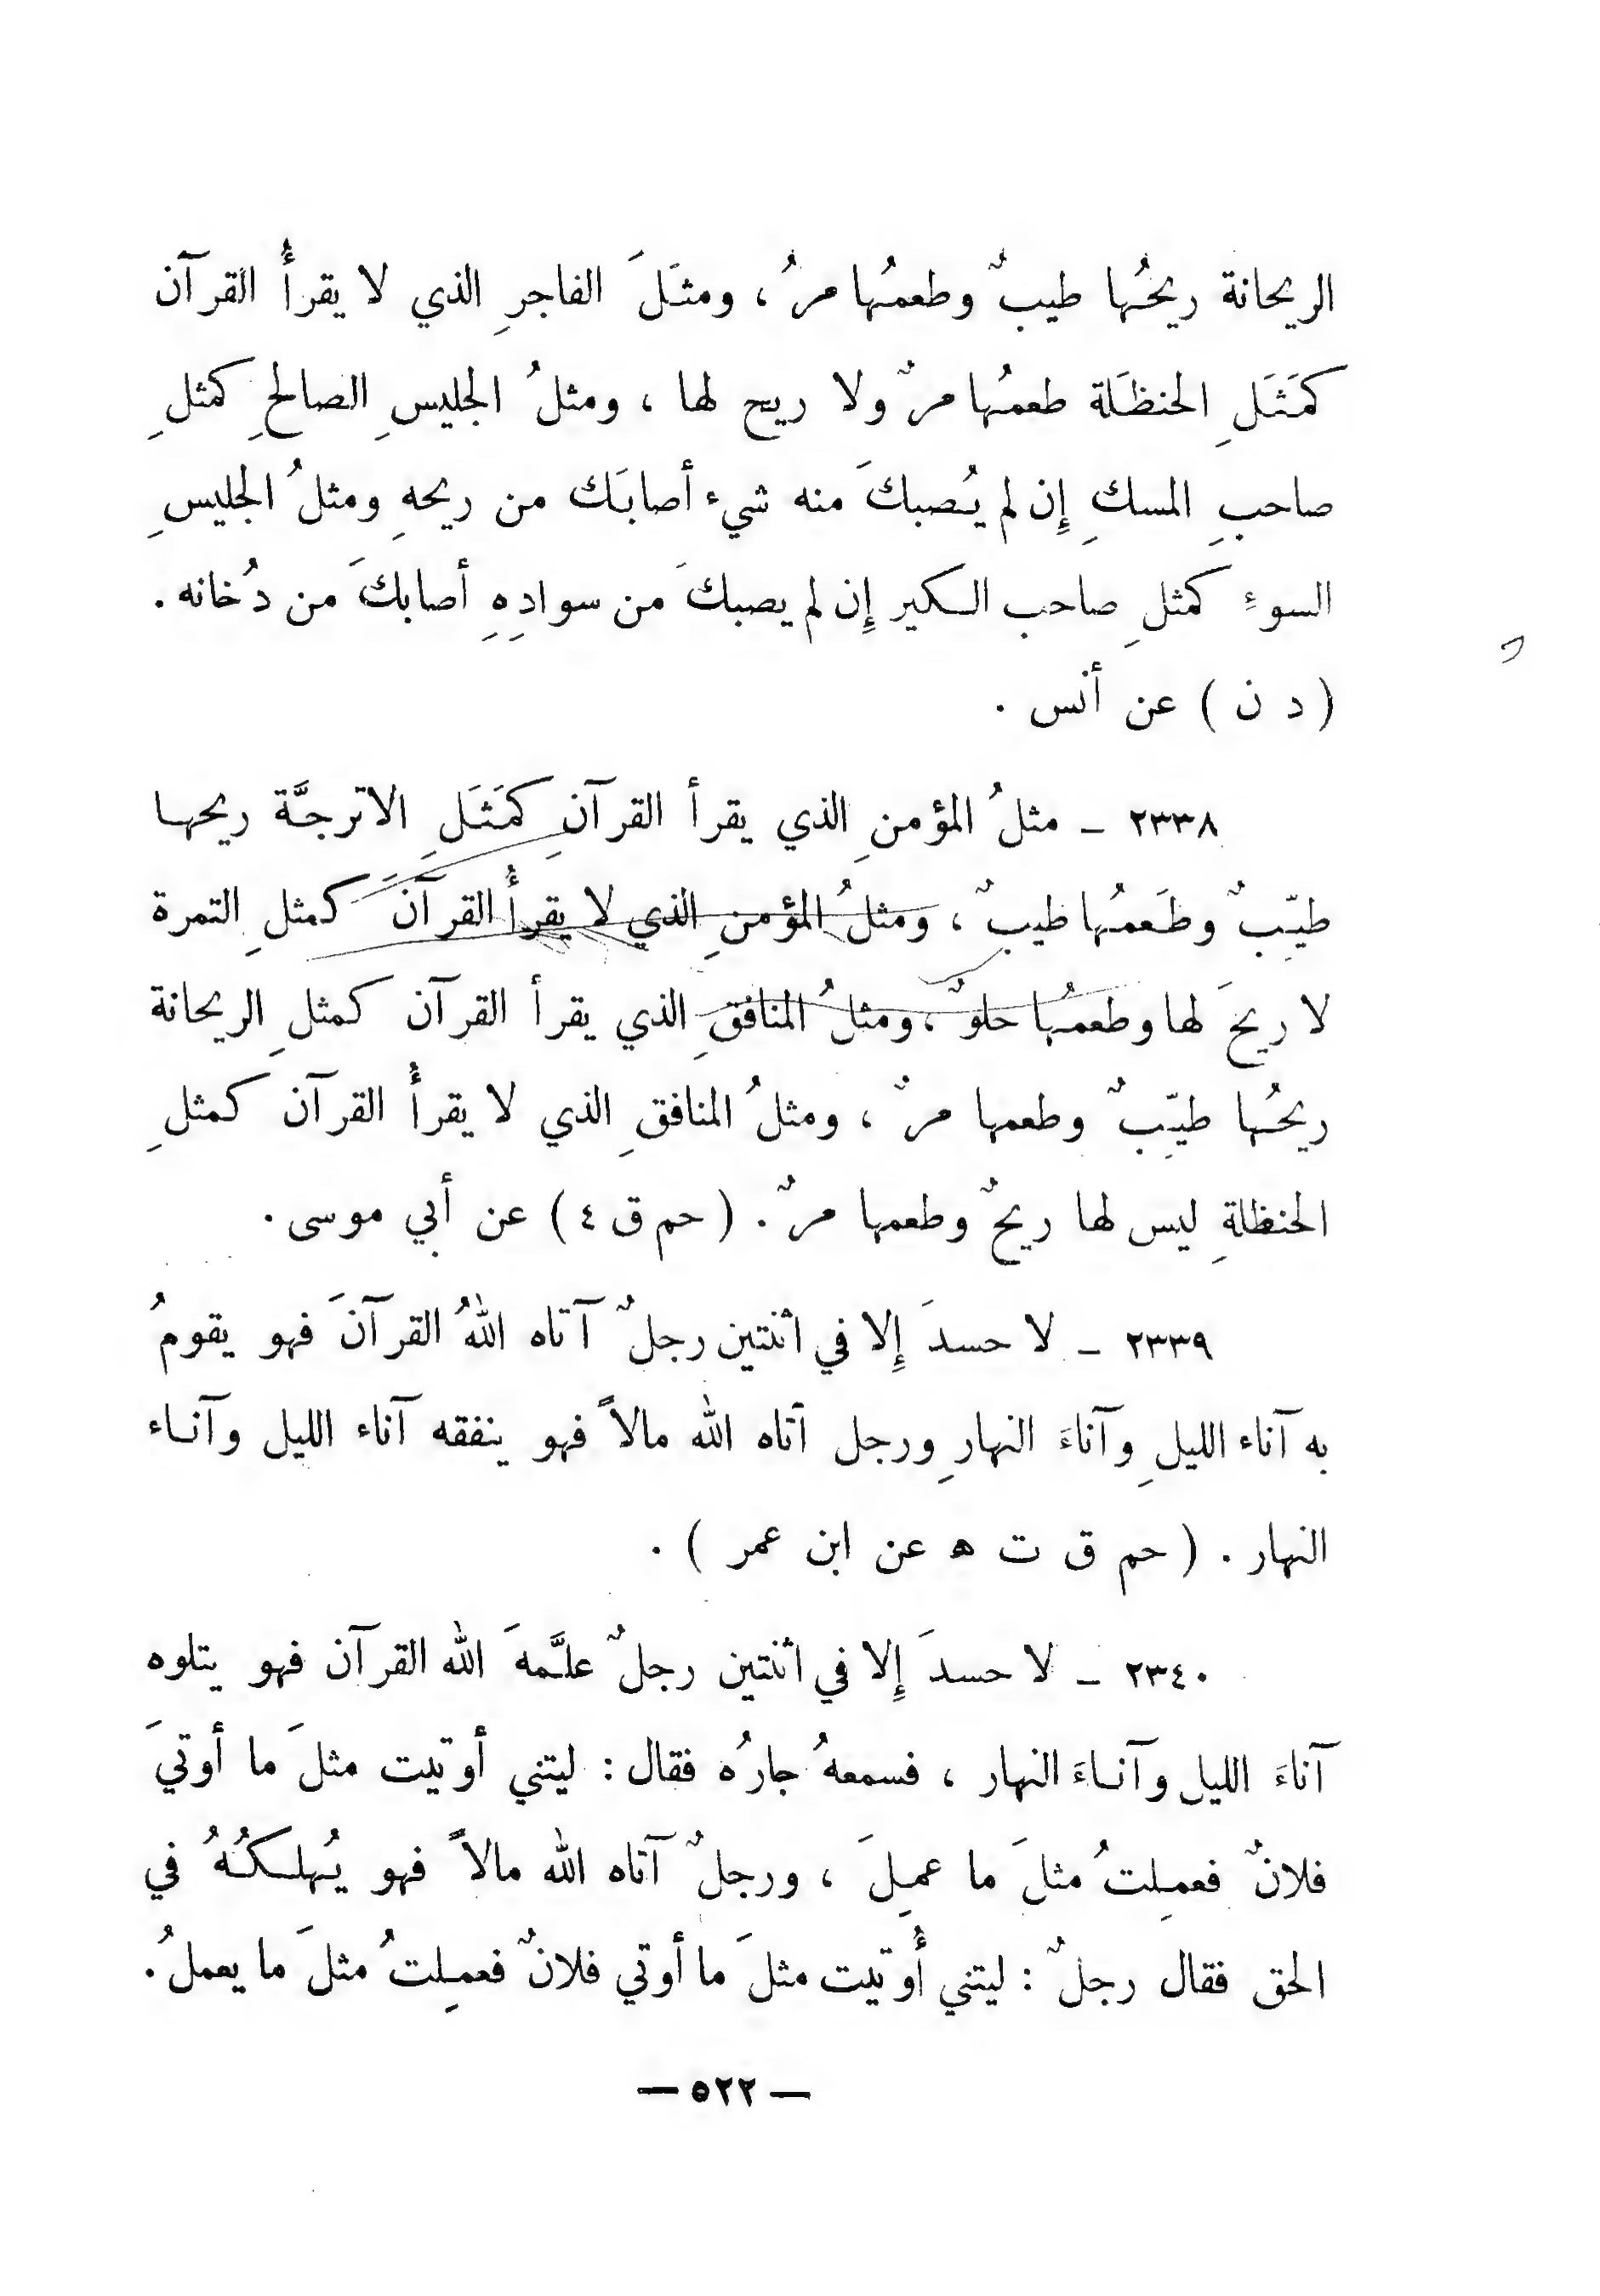 الريحانة ريحُها طيبٌ وطعمُها مرُ ، ومثَلَ الفاجرِ الذي لا يقرأُ القرآن
كمَثَلِ الحنظَلة طعمُها مرٌ ولا ريح لها ، ومثلُ الجليسِ الصالحِ كمثلِ
صاحبِ المسكِ إِن لم يُصبكَ منه شيء أصابَك من ريحهِ ومثلُ الجليسِ
السوءِ كمثلِ صاحب الكير إِن لم يصبكَ من سوادِهِ أصابكَ من دُخانه .
( د ن ) عن أنس .
٢٣٣٨ – مثلُ المؤمنِ الذي يقرأ القرآنِ كمَثَلِ الاترجَّة ريحها
طيّبٌ وطَعمُها طيبٌ ، ومثلُ المؤمنِ الذي لا يقرأُ القرآنَ كمثلِ التمرة
لا ريحَ لها وطعمُها حلوٌ ، ومثلُ المنافقِ الذي يقرأ القرآن كمثلِ الريحانة
ريحُها طيّبٌ وطعمها مرٌ ، ومثلُ المنافقِ الذي لا يقرأُ القرآن كمثلِ
الحنظلةِ ليس لها ريحٌ وطعمها مرٌ . ( حم ق ٤ ) عن أبي موسى .
٢٣٣٩ – لا حسدَ إِلا في اثنتين رجلٌ آتاه اللهُ القرآنَ فهو يقومُ
به آناء الليلِ وآناءَ النهارِ ورجل آتاه الله مالاً فهو ينفقه آناء الليل وآناء
النهار . ( حم ق ت ه عن ابن عمر ) .
٢٣٤٠ – لا حسدَ إِلا في اثنتين رجلٌ علَّمهَ الله القرآن فهو يتلوه
آناءَ الليل وآناءَ النهار ، فسمعهُ جارُه فقال : ليتني أوتيت مثلَ ما أوتيَ
فلانٌ فعمِلتُ مثلَ ما عمِلَ ، ورجلٌ آتاه الله مالاً فهو يُهلكُهُ في
الحق فقال رجلٌ : ليتني أُوتيت مثلَ ما أوتي فلانٌ فعمِلتُ مثلَ ما يعملُ .
— ٥٢٢ —